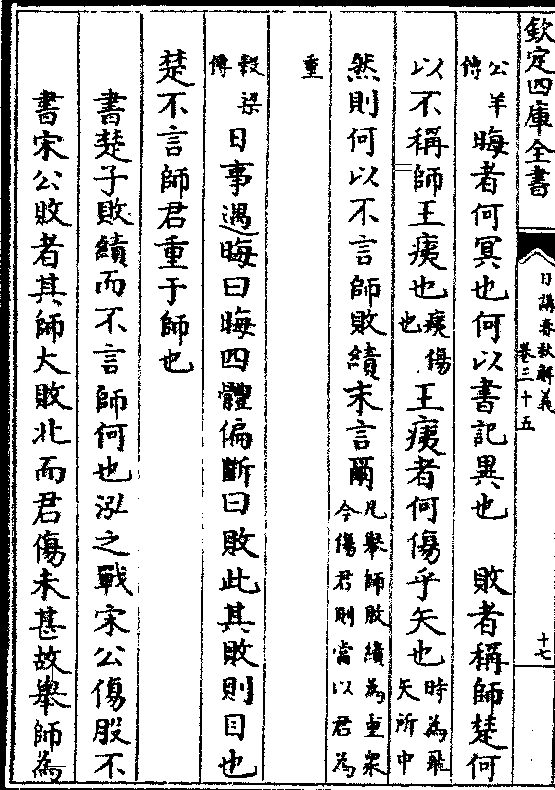 欽定四庫全書
日講春秋解義
卷三十五
十七
公羊傳
晦者何冥也何以書記異也　敗者稱師楚何
以不稱師王痍也
痍傷也
王痍者何傷乎矢也
時為飛矢所中
然則何以不言師敗績末言爾
凡舉師敗績為重衆
今傷君則當以君為
重
穀梁傳
日事遇晦曰晦四體偏斷曰敗此其敗則目也
楚不言師君重于師也
書楚子敗績而不言師何也泓之戰宋公傷股不
書宋公敗者其師大敗北而君傷未甚故舉師為